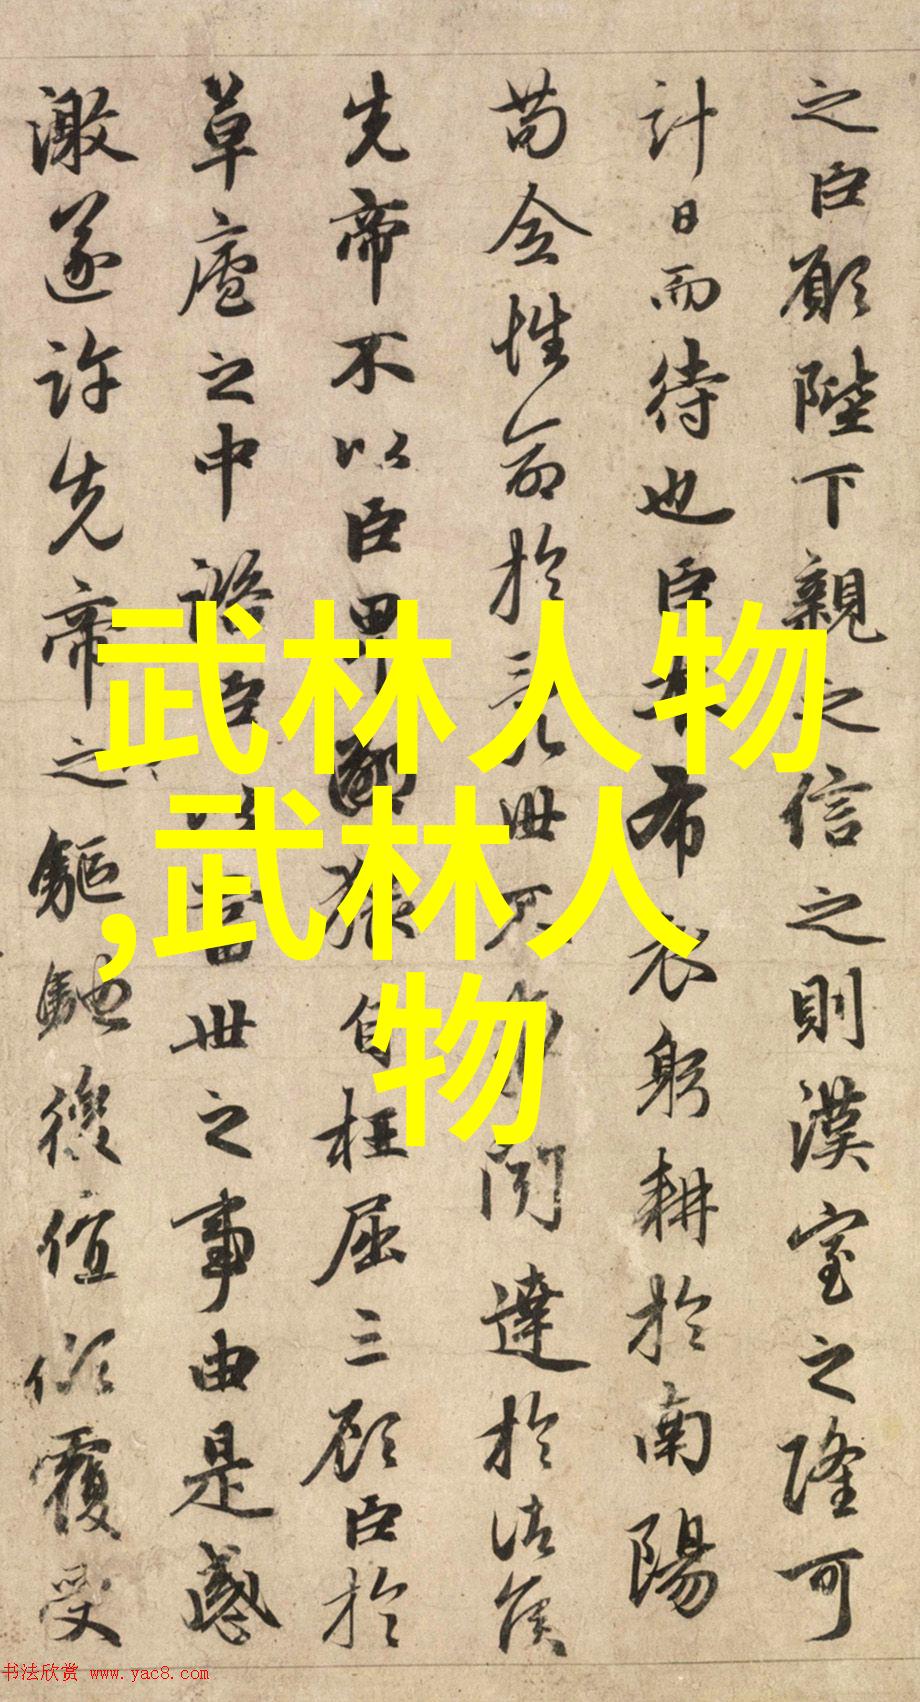 之臣願陛下親之信之則漢室之隆可
計日而待也臣本布衣躬耕於南陽
苟全性命於亂世不求聞達於諸侯
先帝不以臣卑鄙猥自枉屈三顧臣於
草廬之中諮臣以當世之事由是感
激遂許先帝之驅馳後值傾覆受
武林人物
,武林人
物
书法欣赏 www.yac8.com